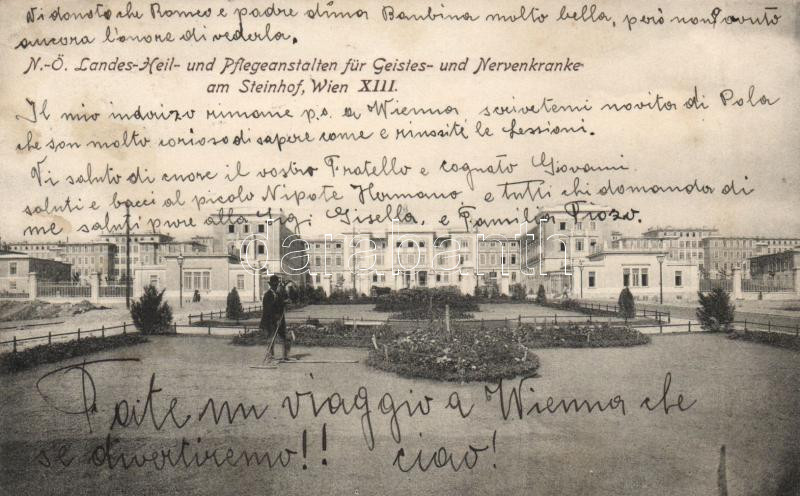 Vi donoto che Romeo e padre d'una Banbina molto bella, però non ò avuto
ancora l'onore di vederla.
N.-Ö. Landes-Heil- und Pflegeanstalten für Geistes- und Nervenkranke
am Steinhof, Wien XIII.
Il mio indorizo rimane p.s. a Wienna scrivetemi novita di Pola
che son molto corioso di sapere come e riuosité le Lessioni.
Vi saluto di cuore il vostro Fratello e cognato Giovanni
saluti e bacci al picolo Nipote Hermano, e tutti chi domanda di
me saluti pure alla Sigi Gisella, e Familia
darabanth
Fate un viaggio a Wienna che
se divertiremo!! ciao!